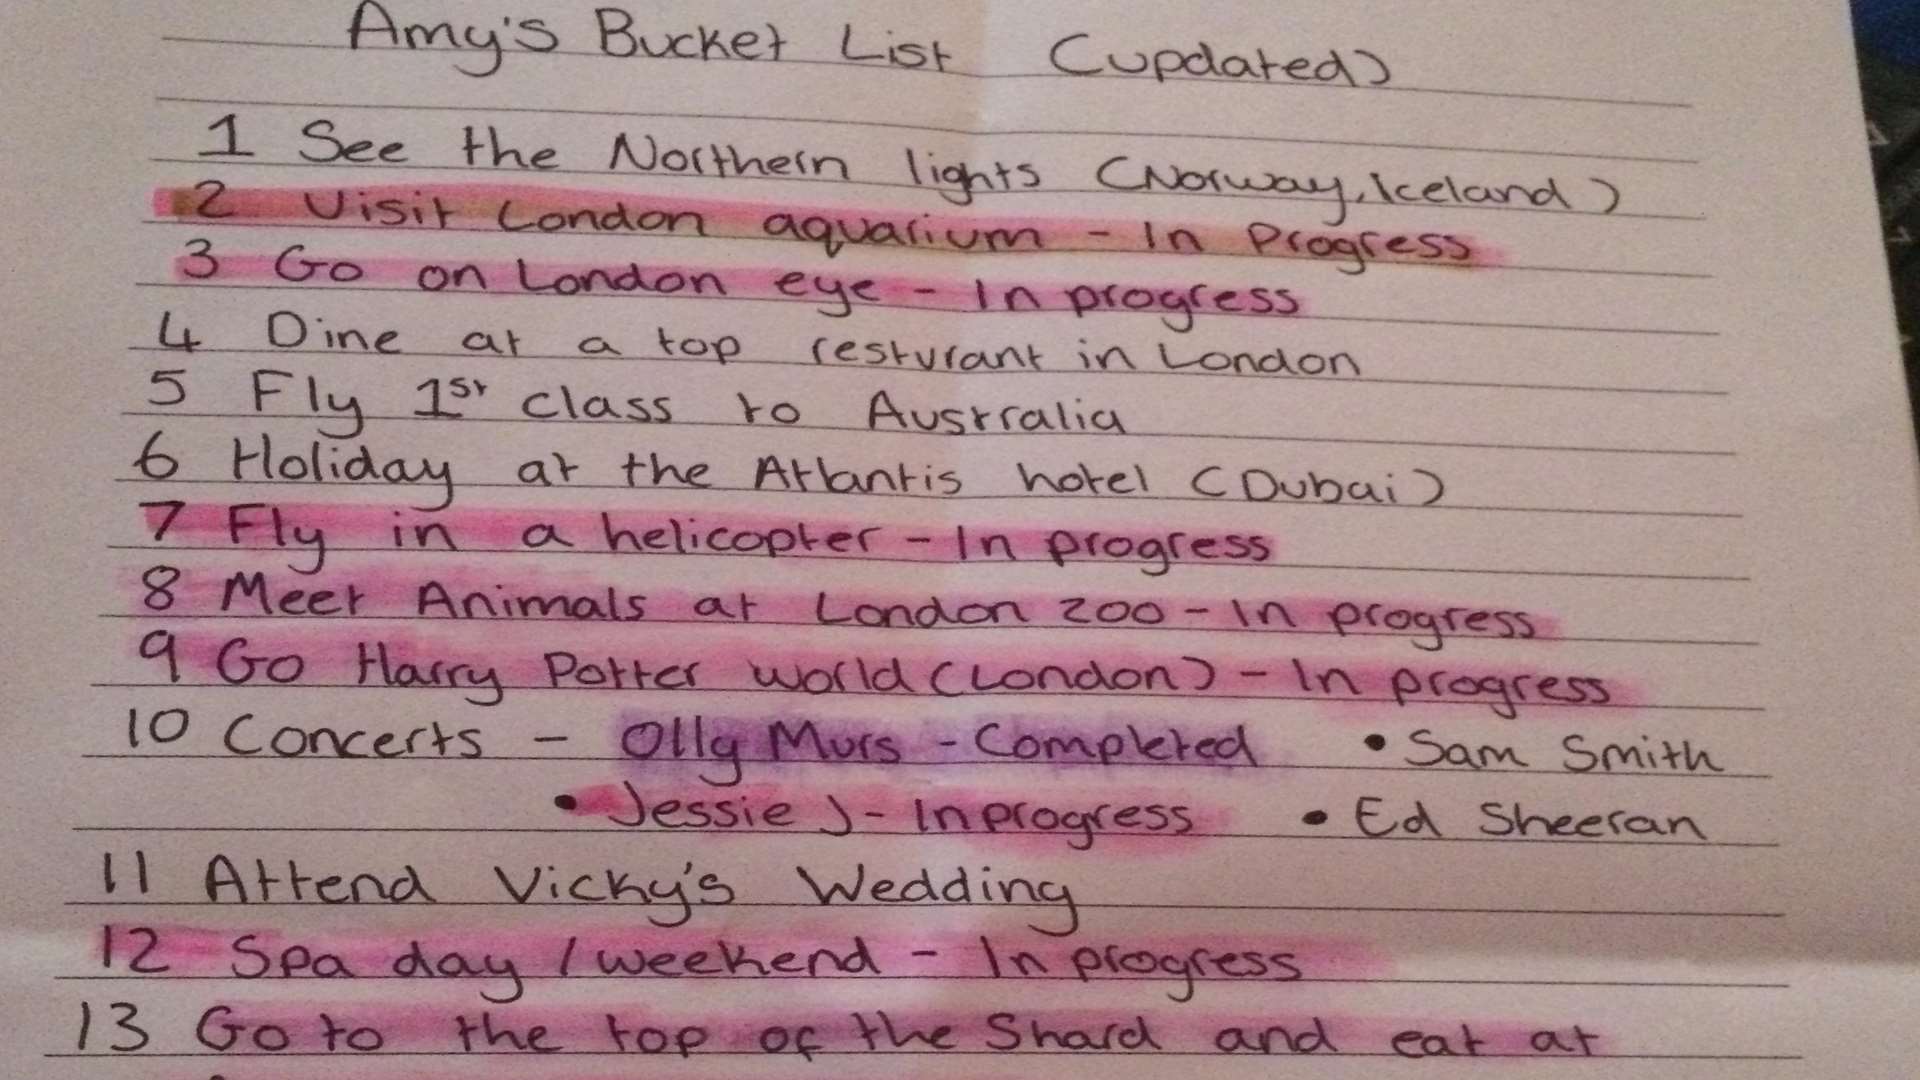 Amy's Bucket List (updated)
1 See the Northern lights (Norway, Iceland)
2 Visit London aquarium - In Progress
3 Go on London eye - In progress
4 Dine at a top resturant in London
5 Fly 1st class to Australia
6 Holiday at the Atlantis hotel (Dubai)
7 Fly in a helicopter - In progress
8 Meet Animals at London zoo - In progress
9 Go Harry Potter world (London) - In progress
10 Concerts - Olly Murs - Completed • Sam Smith
• Jessie J - In progress • Ed Sheeran
11 Attend Vicky's Wedding
12 Spa day / weekend - In progress
13 Go to the top of the Shard and eat at